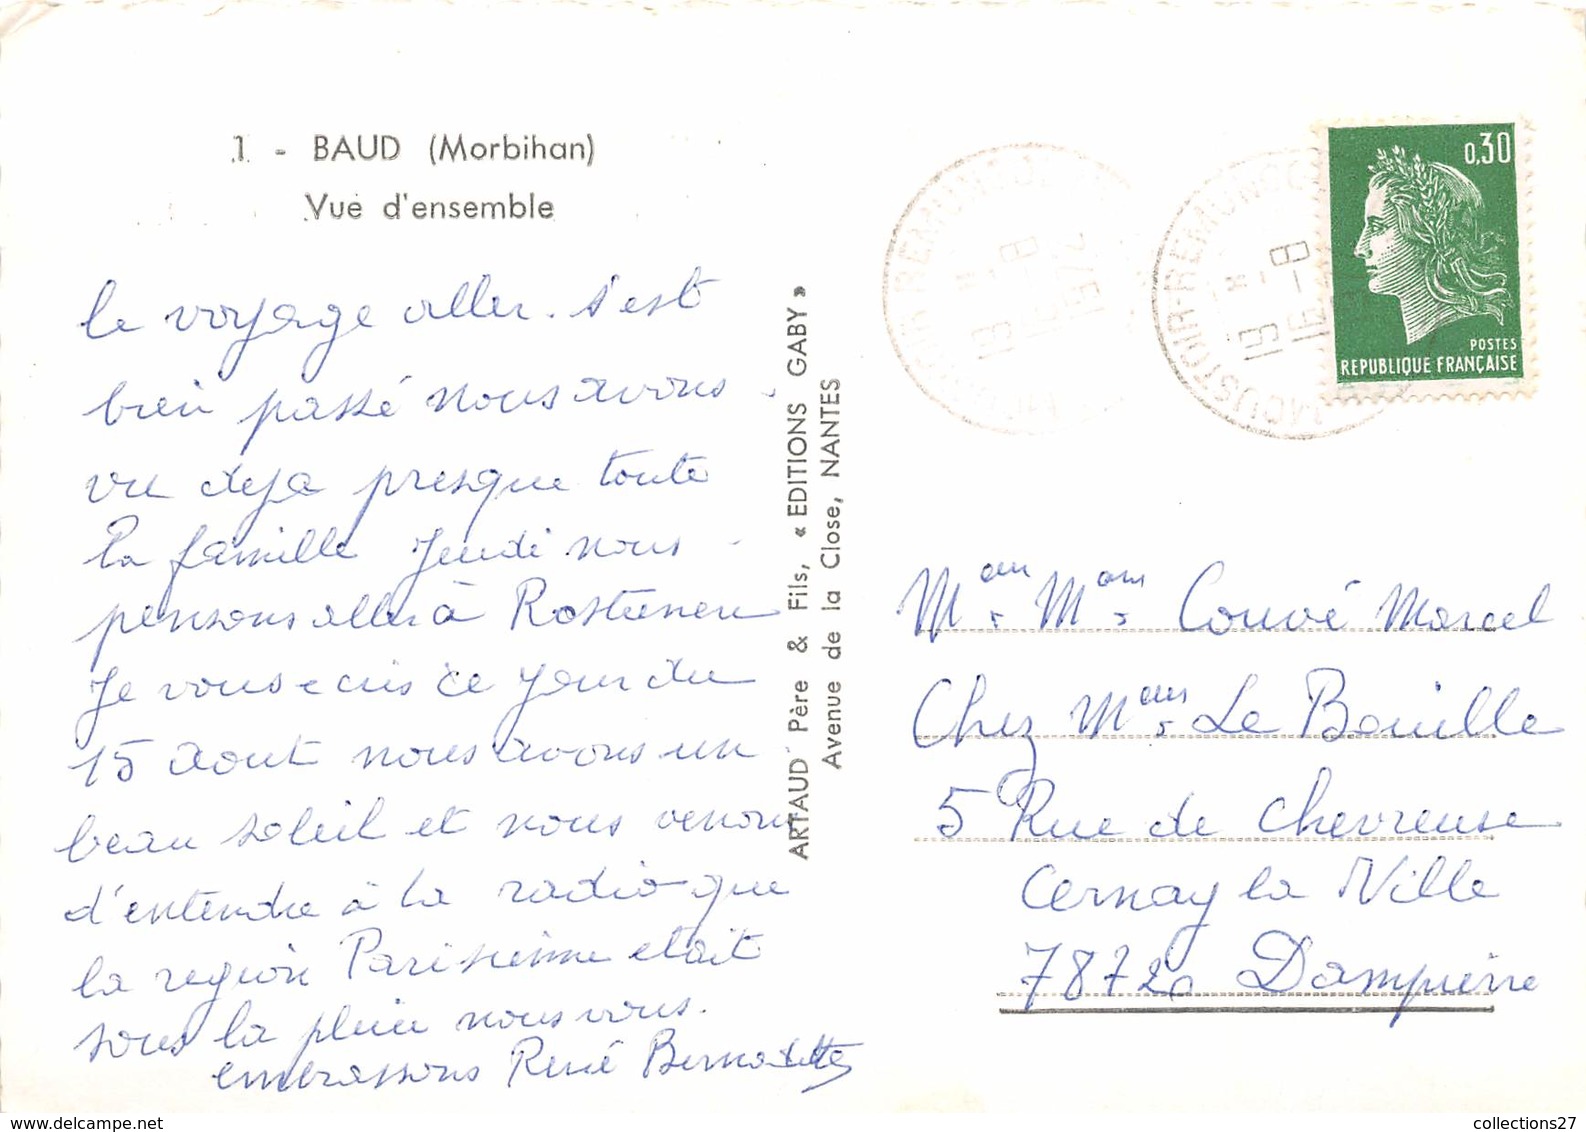 1 - BAUD (Morbihan)
Vue d'ensemble
le voyage aller. s'est
bien passé nous avons
vu deja presque toute
la famille Jeudi nous
pensons aller à Rostrenen
Je vous ecris ce jour du
15 aout nous avons un
beau soleil et nous venons
d'entendre à la radio que
la region Parisienne etait
sous la pluie nous vous.
embrassons René Bernadette
ARTAUD Père & Fils, « EDITIONS GABY »
Avenue de la Close, NANTES
MOUSTOIR-REMUNGOL
0,30
POSTES
REPUBLIQUE FRANÇAISE
Couvé Marcel
Chez Le Bouille
5 Rue de Chevreuse
Cernay la Ville
78720 Dampierre
www.delcampe.net
collections27